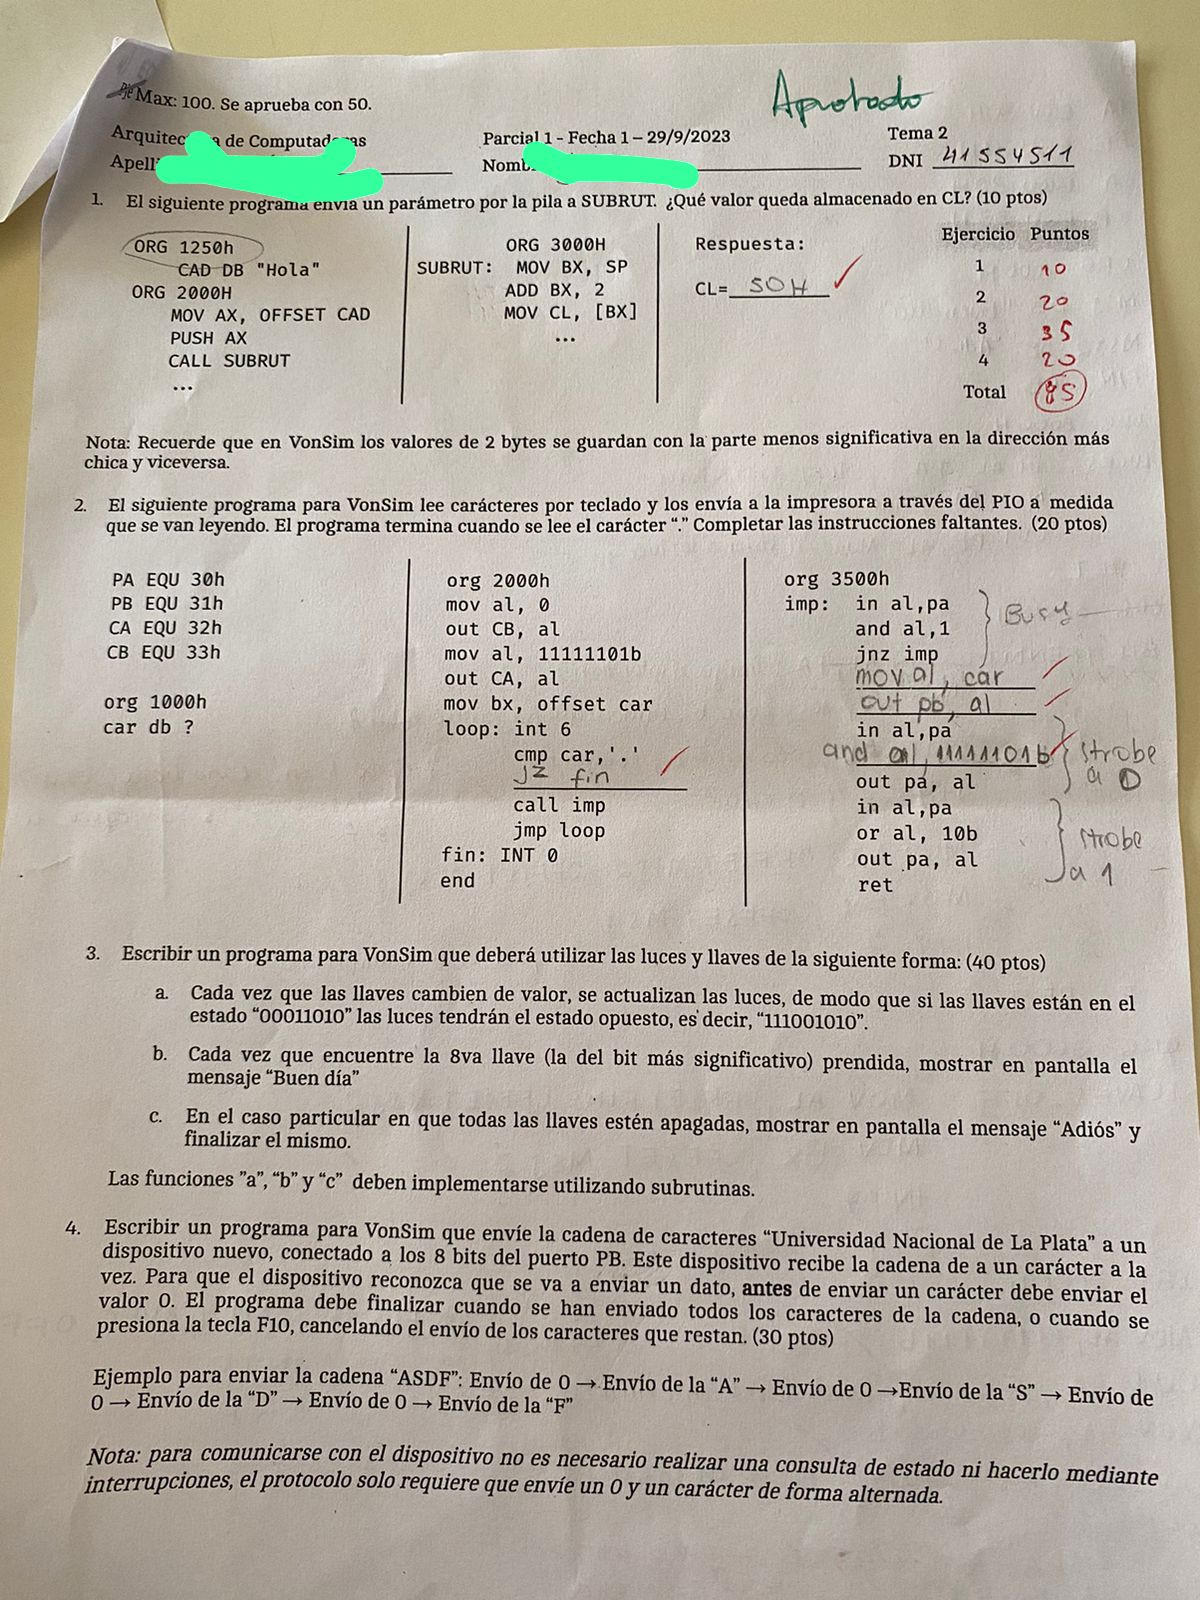 Pje Max: 100. Se aprueba con 50.
Aprobado
Arquitec a de Computad as Parcial 1 - Fecha 1 – 29/9/2023 Tema 2
Apell Nomb DNI 41554511
1. El siguiente programa envía un parámetro por la pila a SUBRUT. ¿Qué valor queda almacenado en CL? (10 ptos)
ORG 1250h
CAD DB "Hola"
ORG 2000H
MOV AX, OFFSET CAD
PUSH AX
CALL SUBRUT
...
ORG 3000H
SUBRUT: MOV BX, SP
ADD BX, 2
MOV CL, [BX]
...
Respuesta:
CL= 50H
Ejercicio Puntos
1 10
2 20
3 35
4 20
Total 85
Nota: Recuerde que en VonSim los valores de 2 bytes se guardan con la parte menos significativa en la dirección más
chica y viceversa.
2. El siguiente programa para VonSim lee carácteres por teclado y los envía a la impresora a través del PIO a medida
que se van leyendo. El programa termina cuando se lee el carácter “.” Completar las instrucciones faltantes. (20 ptos)
PA EQU 30h
PB EQU 31h
CA EQU 32h
CB EQU 33h
org 1000h
car db ?
org 2000h
mov al, 0
out CB, al
mov al, 11111101b
out CA, al
mov bx, offset car
loop: int 6
cmp car,'.'
jz fin
call imp
jmp loop
fin: INT 0
end
org 3500h
imp: in al,pa
and al,1
jnz imp
Busy
mov al, car
out pb, al
in al,pa
and al, 11111101b
out pa, al
strobe
a 0
in al,pa
or al, 10b
out pa, al
strobe
a 1
ret
3. Escribir un programa para VonSim que deberá utilizar las luces y llaves de la siguiente forma: (40 ptos)
a. Cada vez que las llaves cambien de valor, se actualizan las luces, de modo que si las llaves están en el
estado “00011010” las luces tendrán el estado opuesto, es decir, “111001010”.
b. Cada vez que encuentre la 8va llave (la del bit más significativo) prendida, mostrar en pantalla el
mensaje “Buen día”
c. En el caso particular en que todas las llaves estén apagadas, mostrar en pantalla el mensaje “Adiós” y
finalizar el mismo.
Las funciones ”a”, “b” y “c” deben implementarse utilizando subrutinas.
4. Escribir un programa para VonSim que envíe la cadena de caracteres “Universidad Nacional de La Plata” a un
dispositivo nuevo, conectado a los 8 bits del puerto PB. Este dispositivo recibe la cadena de a un carácter a la
vez. Para que el dispositivo reconozca que se va a enviar un dato, antes de enviar un carácter debe enviar el
valor 0. El programa debe finalizar cuando se han enviado todos los caracteres de la cadena, o cuando se
presiona la tecla F10, cancelando el envío de los caracteres que restan. (30 ptos)
Ejemplo para enviar la cadena “ASDF”: Envío de 0 → Envío de la “A” → Envío de 0 →Envío de la “S” → Envío de
0 → Envío de la “D” → Envío de 0 → Envío de la “F”
Nota: para comunicarse con el dispositivo no es necesario realizar una consulta de estado ni hacerlo mediante
interrupciones, el protocolo solo requiere que envíe un 0 y un carácter de forma alternada.